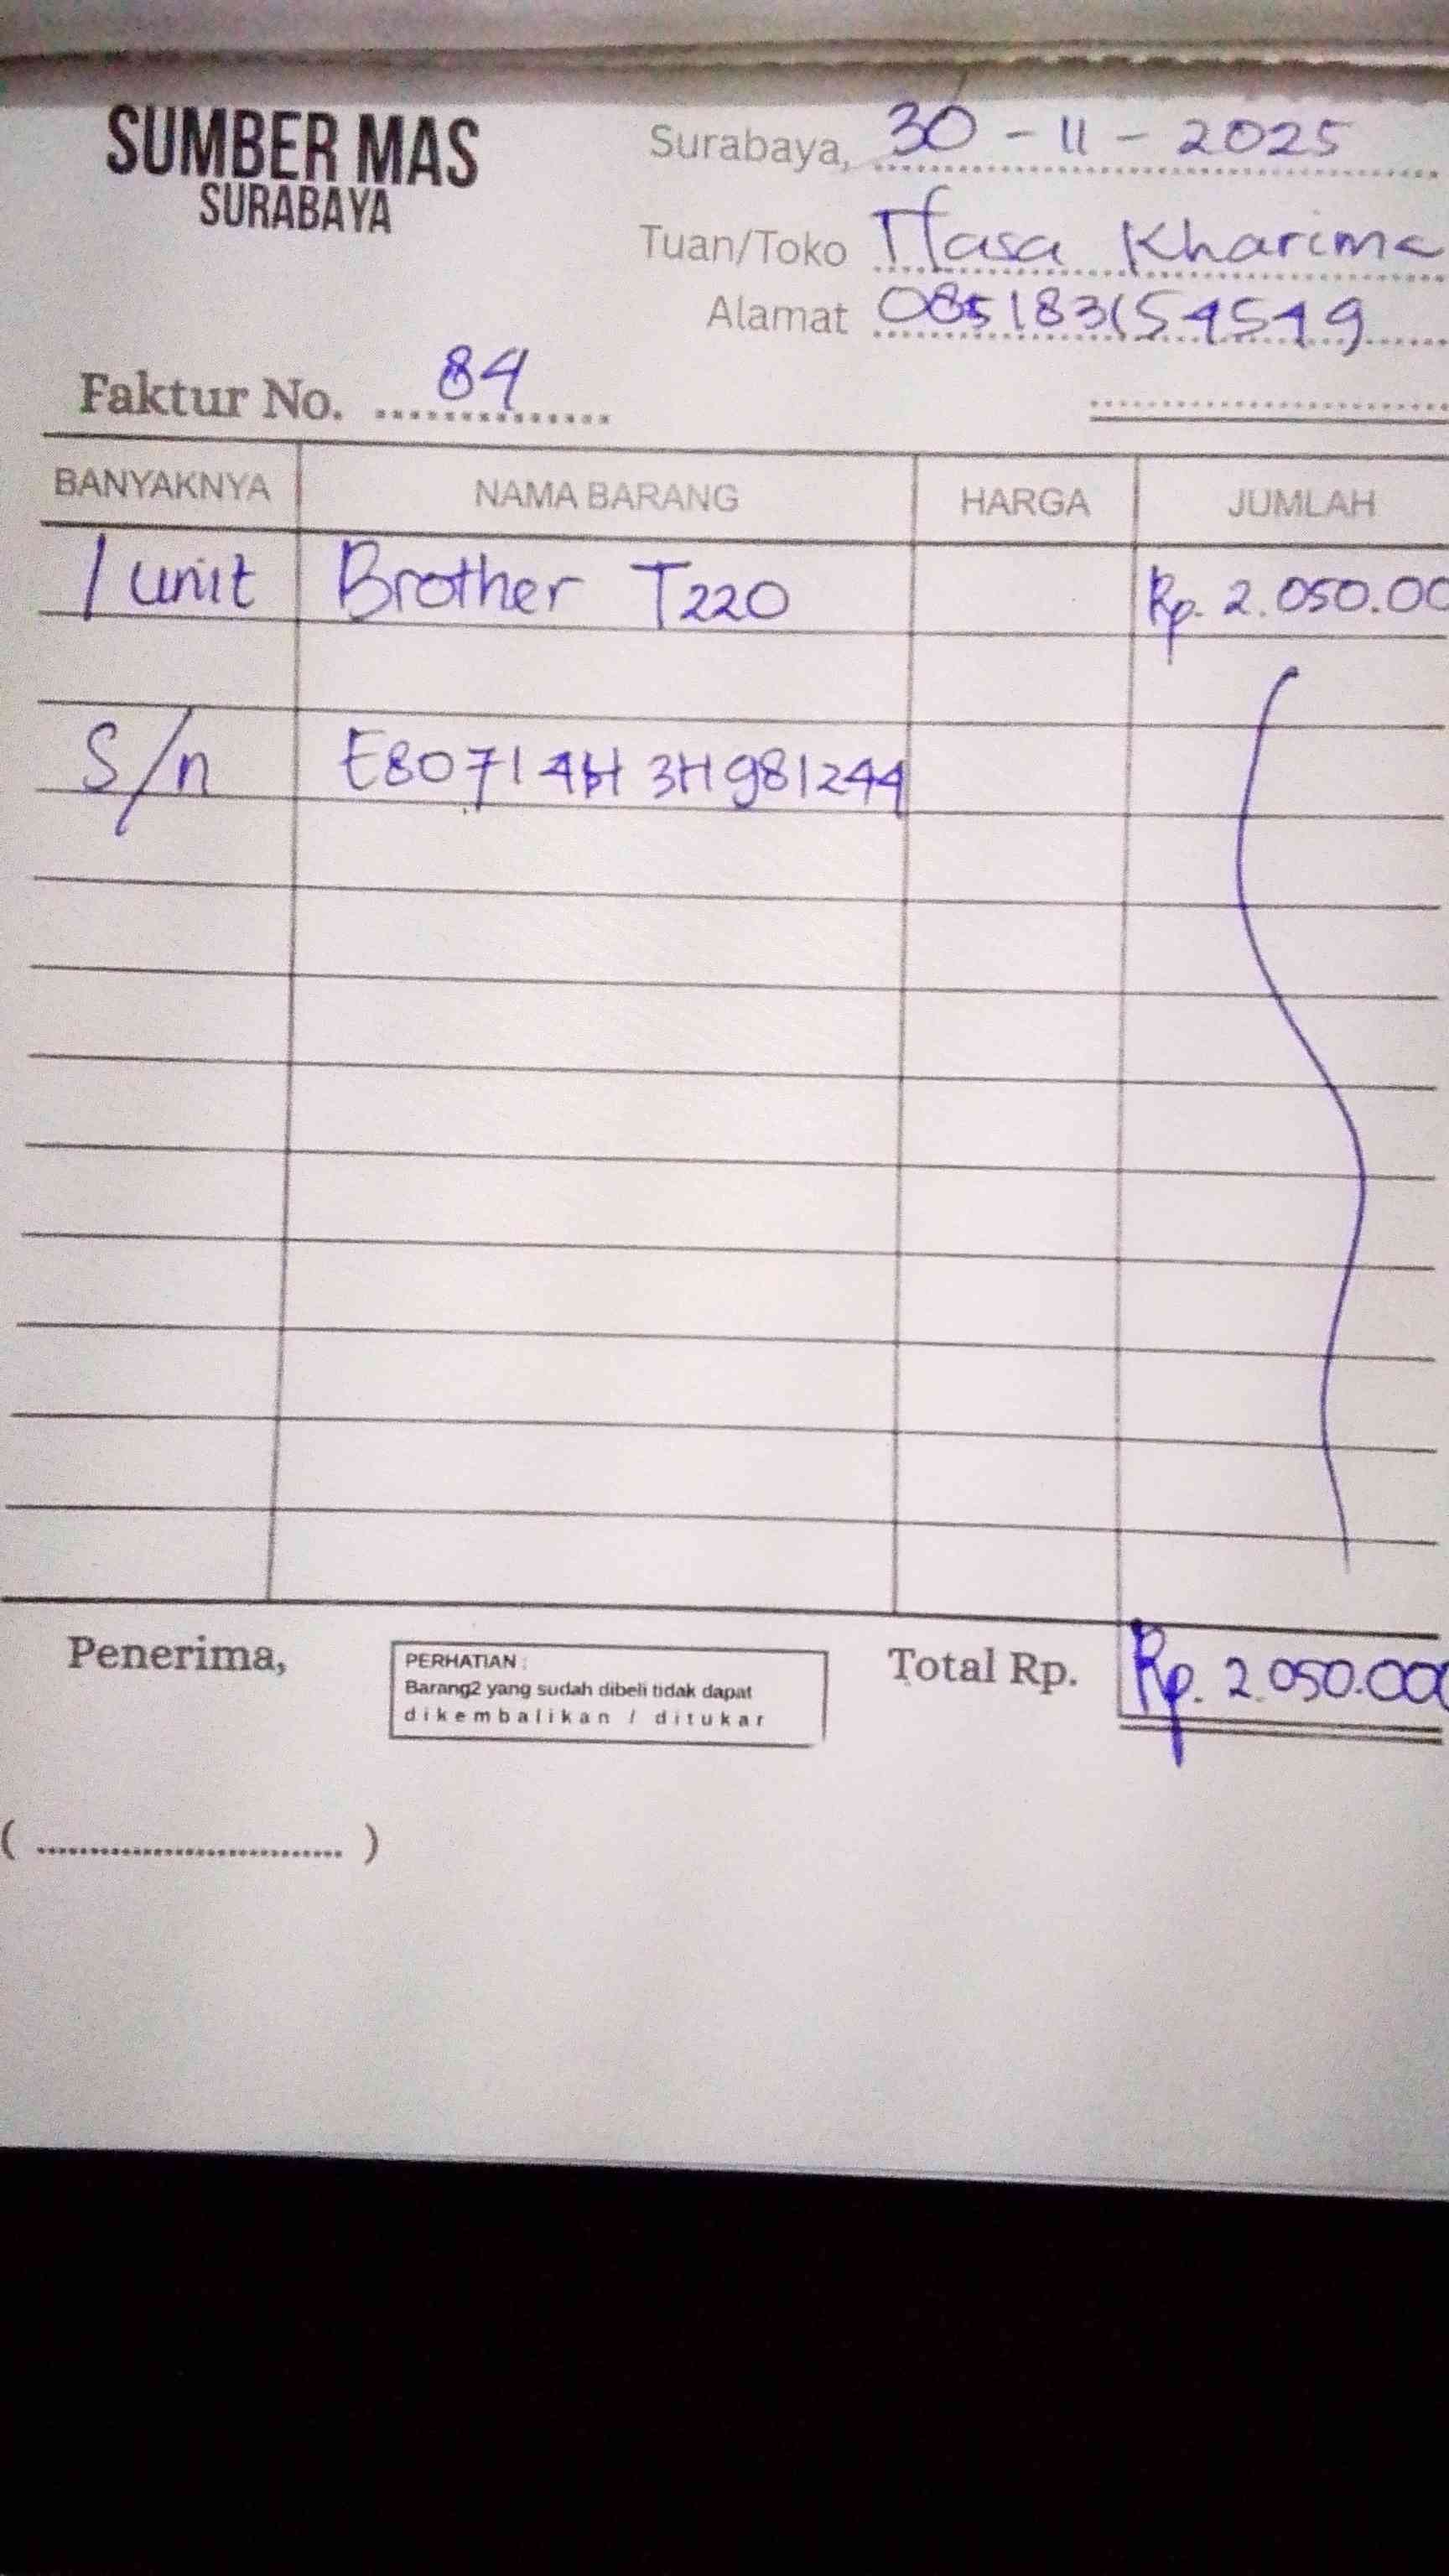 SUMBER MAS
SURABAYA
Surabaya, 30 - 11 - 2025
Tuan/Toko Kharima
Alamat
Faktur No. 84
BANYAKNYA NAMA BARANG HARGA JUMLAH
1 unit Brother T220 Rp. 2.050.00
S/n
Penerima,
PERHATIAN :
Barang2 yang sudah dibeli tidak dapat
dikembalikan / ditukar
Total Rp. Rp. 2.050.000
( .............................. )